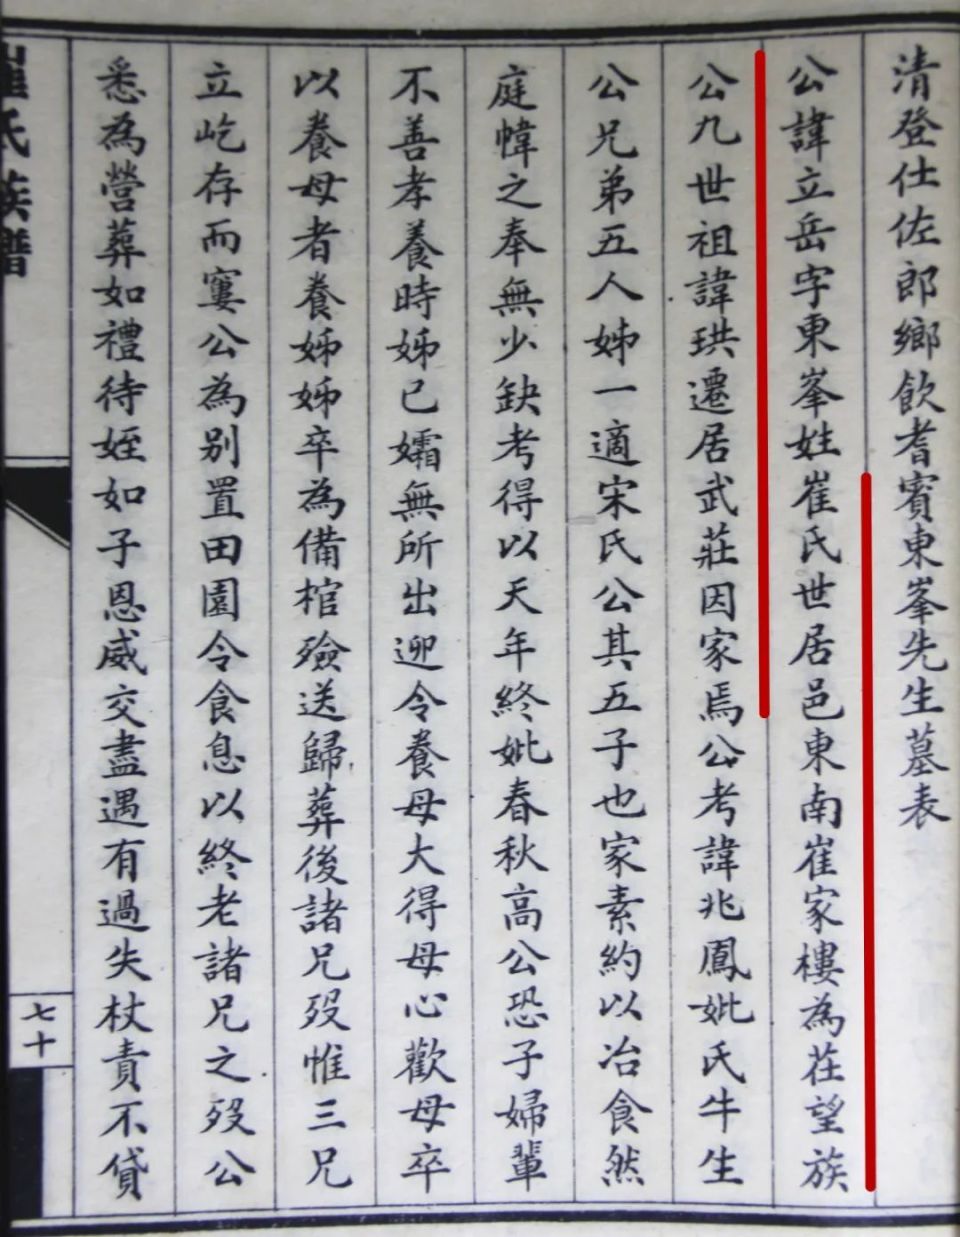 清登仕佐郎鄉飲耆賓東峯先生墓表
公諱立岳字東峯姓崔氏世居邑東南崔家樓為茌望族
公九世祖諱珙遷居武莊因家焉公考諱兆鳳妣氏牛生
公兄弟五人姊一適宋氏公其五子也家素約以冶食然
庭幃之奉無少缺考得以天年終妣春秋高公恐子婦輩
不善孝養時姊已孀無所出迎令養母大得母心歡母卒
以養母者養姊姊卒為備棺殮送歸葬後諸兄歿惟三兄
立屹存而窶公為別置田園令食息以終老諸兄之歿公
悉為營葬如禮待姪如子恩威交盡遇有過失杖責不貸
崔氏族譜
七十